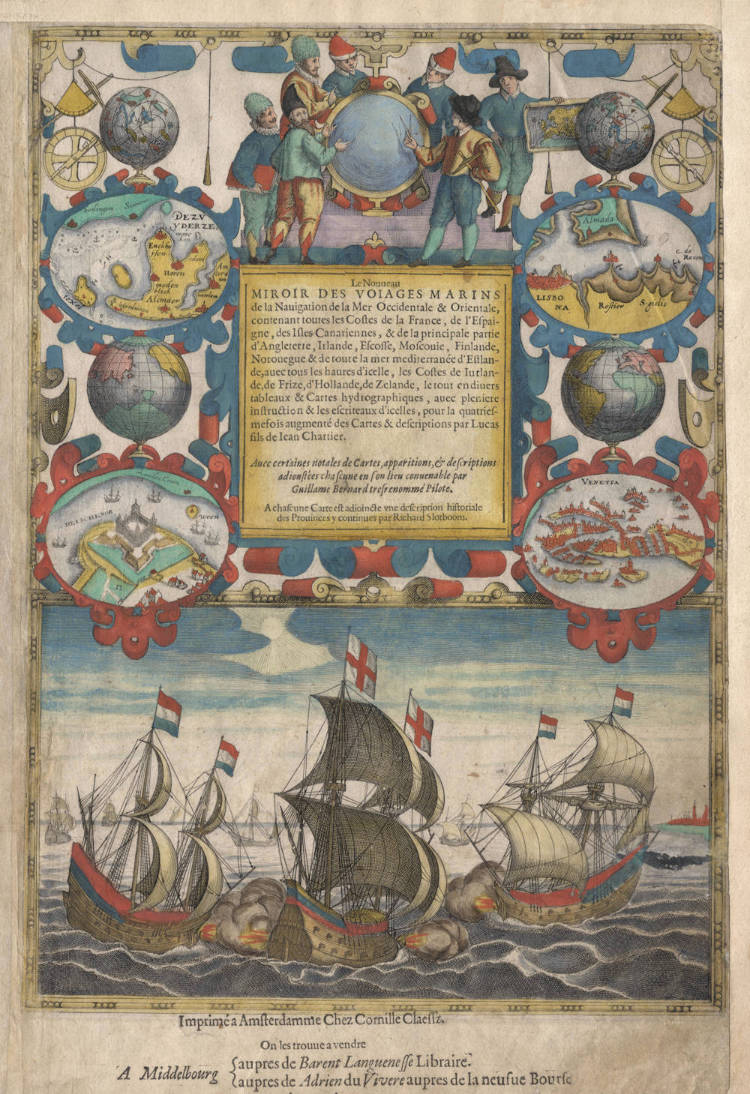 Le Nouueau
MIROIR DES VOIAGES MARINS
de la Nauigation de la Mer Occidentale & Orientale,
contenant toutes les Costes de la France, de l'Espai-
gne, des Isles Canariennes, & de la principale partie
d'Angleterre, Irlande, Escosse, Moscouie, Finlande,
Norouegue & de toute la mer mediterranée d'Eistlan-
de, auec tous les haures d'icelle, les Costes de Iutlan-
de, de Frize, d'Hollande, de Zelande, le tout en diuers
tableaux & Cartes hydrographiques, auec pleniere
instruction & les escriteaux d'icelles, pour la quatries-
mefois augmenté des Cartes & descriptions par Lucas
fils de Iean Chartier.
Auec certaines notales de Cartes, apparitions, & descriptions
adioustées chascune en son lieu conuenable par
Guillame Bernard tresrenommé Pilote.
A chascune Carte est adioincte vne description historiale
des Prouinces y continues par Richard Slotboom.
DE ZV
YDERZE
Enckhu
sen
Horen
meden
bleck
Alcmaer
Almada
LISBO
NA
Rostier
C. de
VENETIA
Imprimé a Amsterdamme Chez Cornille Claessz.
On les trouue a vendre
A Middelbourg
aupres de Barent Languenesse Libraire.
aupres de Adrien du Vivere aupres de la neufue Bourse